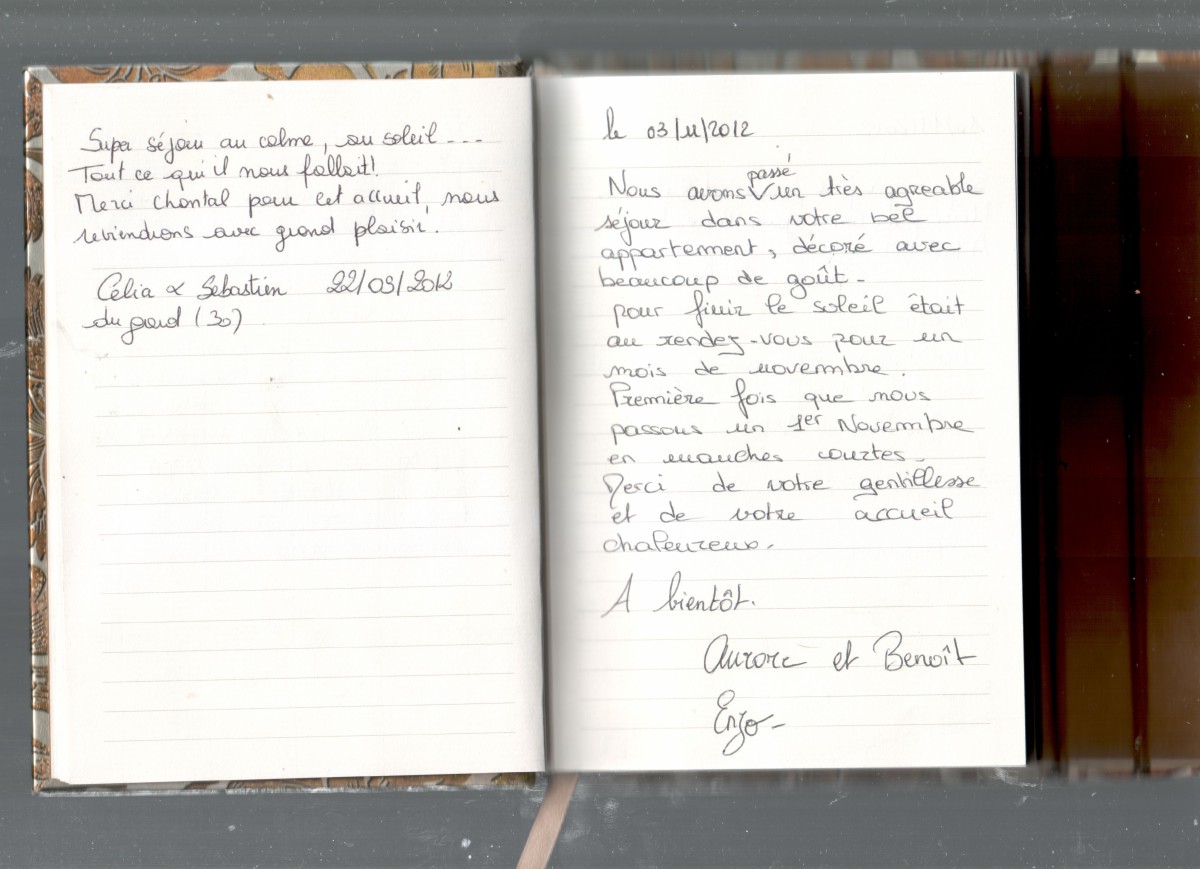 Super séjour au calme, au soleil ----
Tout ce qu'il nous fallait!
Merci Chantal pour cet accueil, nous
reviendrons avec grand plaisir.
Célia & Sébastien 22/09/2012
du gard (30)
le 03/11/2012
Nous avons passé un très agreable
séjour dans votre bel
appartement, décoré avec
beaucoup de goût.
pour finir le soleil était
au rendez-vous pour un
mois de novembre.
Première fois que nous
passons un 1er Novembre
en manches courtes.
Merci de votre gentillesse
et de votre accueil
chaleureux.
A bientôt.
Aurore et Benoît
Enzo-